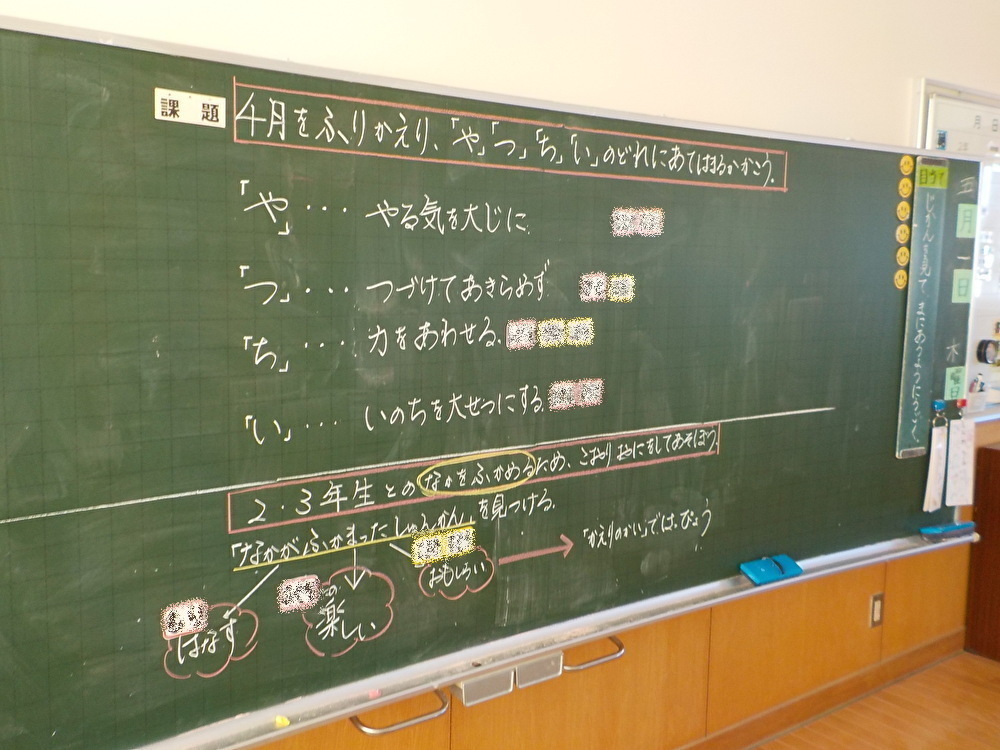 課題
4月をふりかえり、「や」「つ」「ち」「い」のどれにあてはまるかかこう。
「や」・・・やる気を大じに。
「つ」・・・つづけてあきらめず
「ち」・・・力をあわせる。
「い」・・・いのちを大せつにする。
2・3年生とのなかをふかめるため、こおりおにをしてあそぼう。
「なかがふかまったしゅんかん」を見つける。
はなす
楽しい
おもしろい
「かえりのかい」ではっぴょう
五月一日木曜日
目あて
じかんを見てまにあうようにうごく
月 日